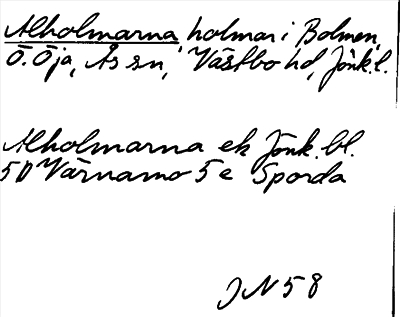 Alholmarna, holmar i Bolmen,
Ö. Öja, Ås sn, Västbo hd, Jönk.l.
Alholmarna ek Jönk. bl.
5D Värnamo 5 e Sporda
JN 58